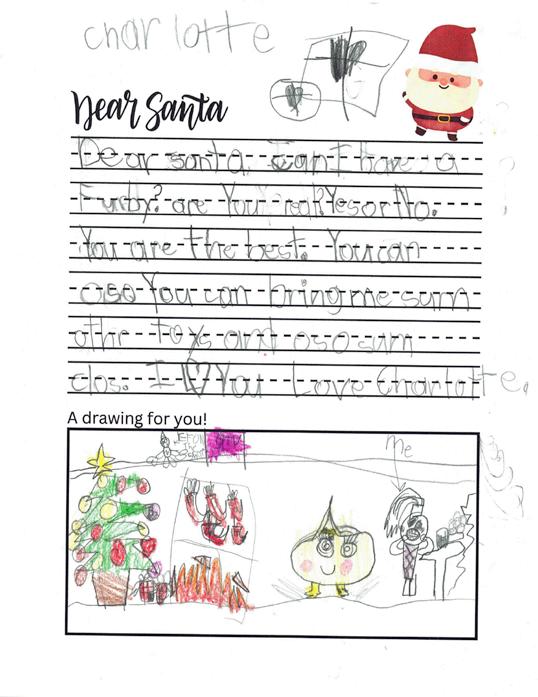 Charlotte
Dear Santa
Dear santa, Can I have a
Furby? are You real? Yes or No.
You are the best. You can
oso You can bring me sum
othr toys and oso sum
clos. I You Love Charlotte.
A drawing for you!
me